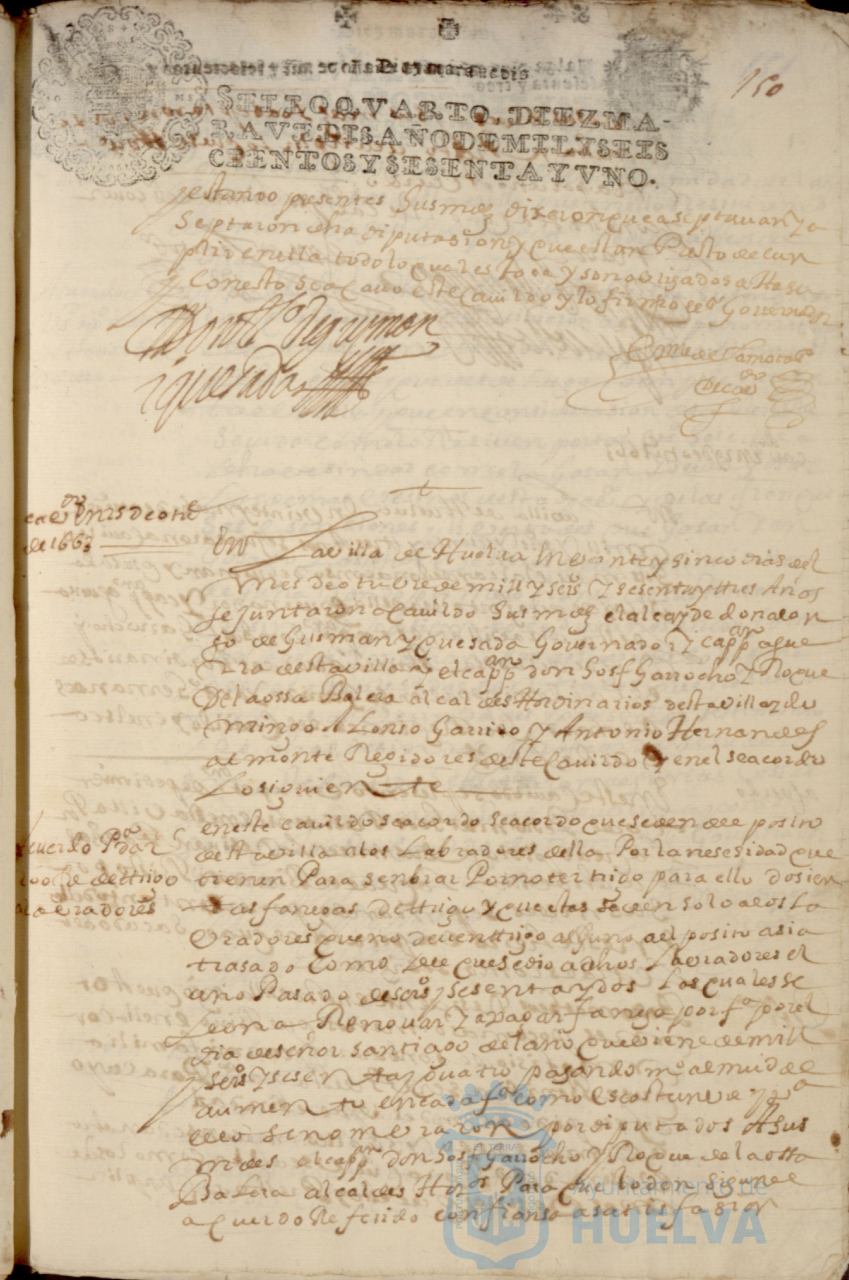 150
SELLO QVARTO, DIEZ MA-
RAVEDIS, AÑO DE MIL Y SEIS
CIENTOS Y SESENTA Y VNO.
y estando presentes Sus mds dixeron que aseptavan y a
Septaron dha diputasion y que estan Prestos de cun
plir en ella todo lo que les toca y son obligados a Haser
y Con esto se acavo este Cavildo y lo firmo el sr Governador
de gusman
y quesada
Cavdo en 25 de otue
de 1663
En La villa de Huelva en veinte y sinco dias del
mes de otubre de mill y seis y sesenta y tres Años
se juntaron a Cavildo Sus mds el alcayde don alon
so de Gusman y quesada Governador y capp an a gue
rra de esta villa el capp an don Josf Garrocho y Roque
de la ossa Balera alcaldes Hordinarios desta villa y do
mingo Alonso Garrido y Antonio Hernandes
almonte Regidores deste Cavildo y en el se acordo
Lo siguiente
Acuerdo Pa dar
de ttrigo
a labradores
en este cavildo se acordo se acordo que se den del posito
desta villa a los Labradores della Por la nesesidad que
tienen Para senbrar Por no tener trigo para ello dosien
tas fanegas de ttrigo y que estas se den solo a los la
bradores que no deven ttrigo alguno al posito asi a
trasado Como del que se dio a dhos Labradores el
año Pasado de seis y sesenta y dos Los quales se
an a Renovar y a pagar fanega por fa por el
dia de señor Santiago del año que viene de mill
y seis y sesenta y quatro pagando mo almud de
aumento en cada fa como es costunbre y pa
ello se nomeraron por diputados A sus
mdes el capp an don Josf Garrocho y Roque de la ossa
Balera alcaldes Hos Para que lo don
acuerdo Referido con fianso a satisfasion
Ayuntamiento de
HUELVA